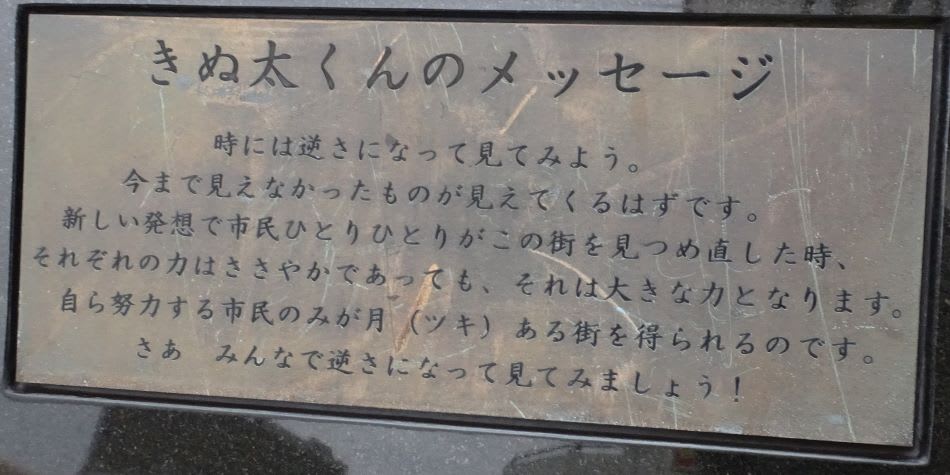 きぬ太くんのメッセージ
時には逆さになって見てみよう。
今まで見えなかったものが見えてくるはずです。
新しい発想で市民ひとりひとりがこの街を見つめ直した時、
それぞれの力はささやかであっても、それは大きな力となります。
自ら努力する市民のみが月（ツキ）ある街を得られるのです。
さあ　みんなで逆さになって見てみましょう！